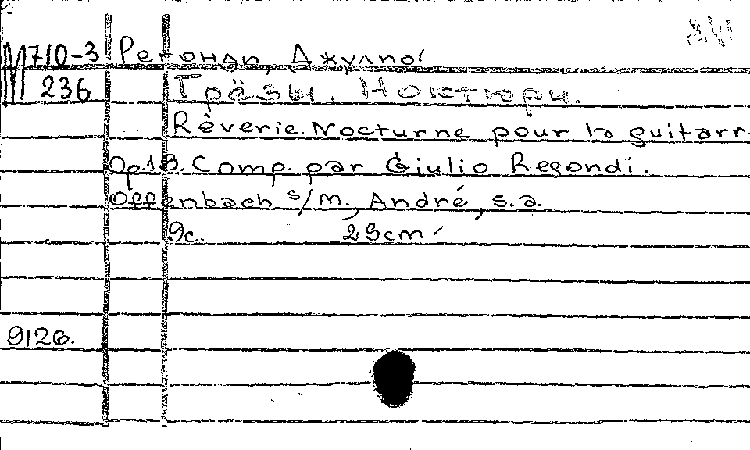 М710-3 Регонди, Джулио
236 Грёзы. Ноктюрн.
Rêverie. Nocturne pour la guitarr
Op. 19. Comp. par Giulio Regondi.
Offenbach s/m, André, s.a.
9c. 29cm
9126.